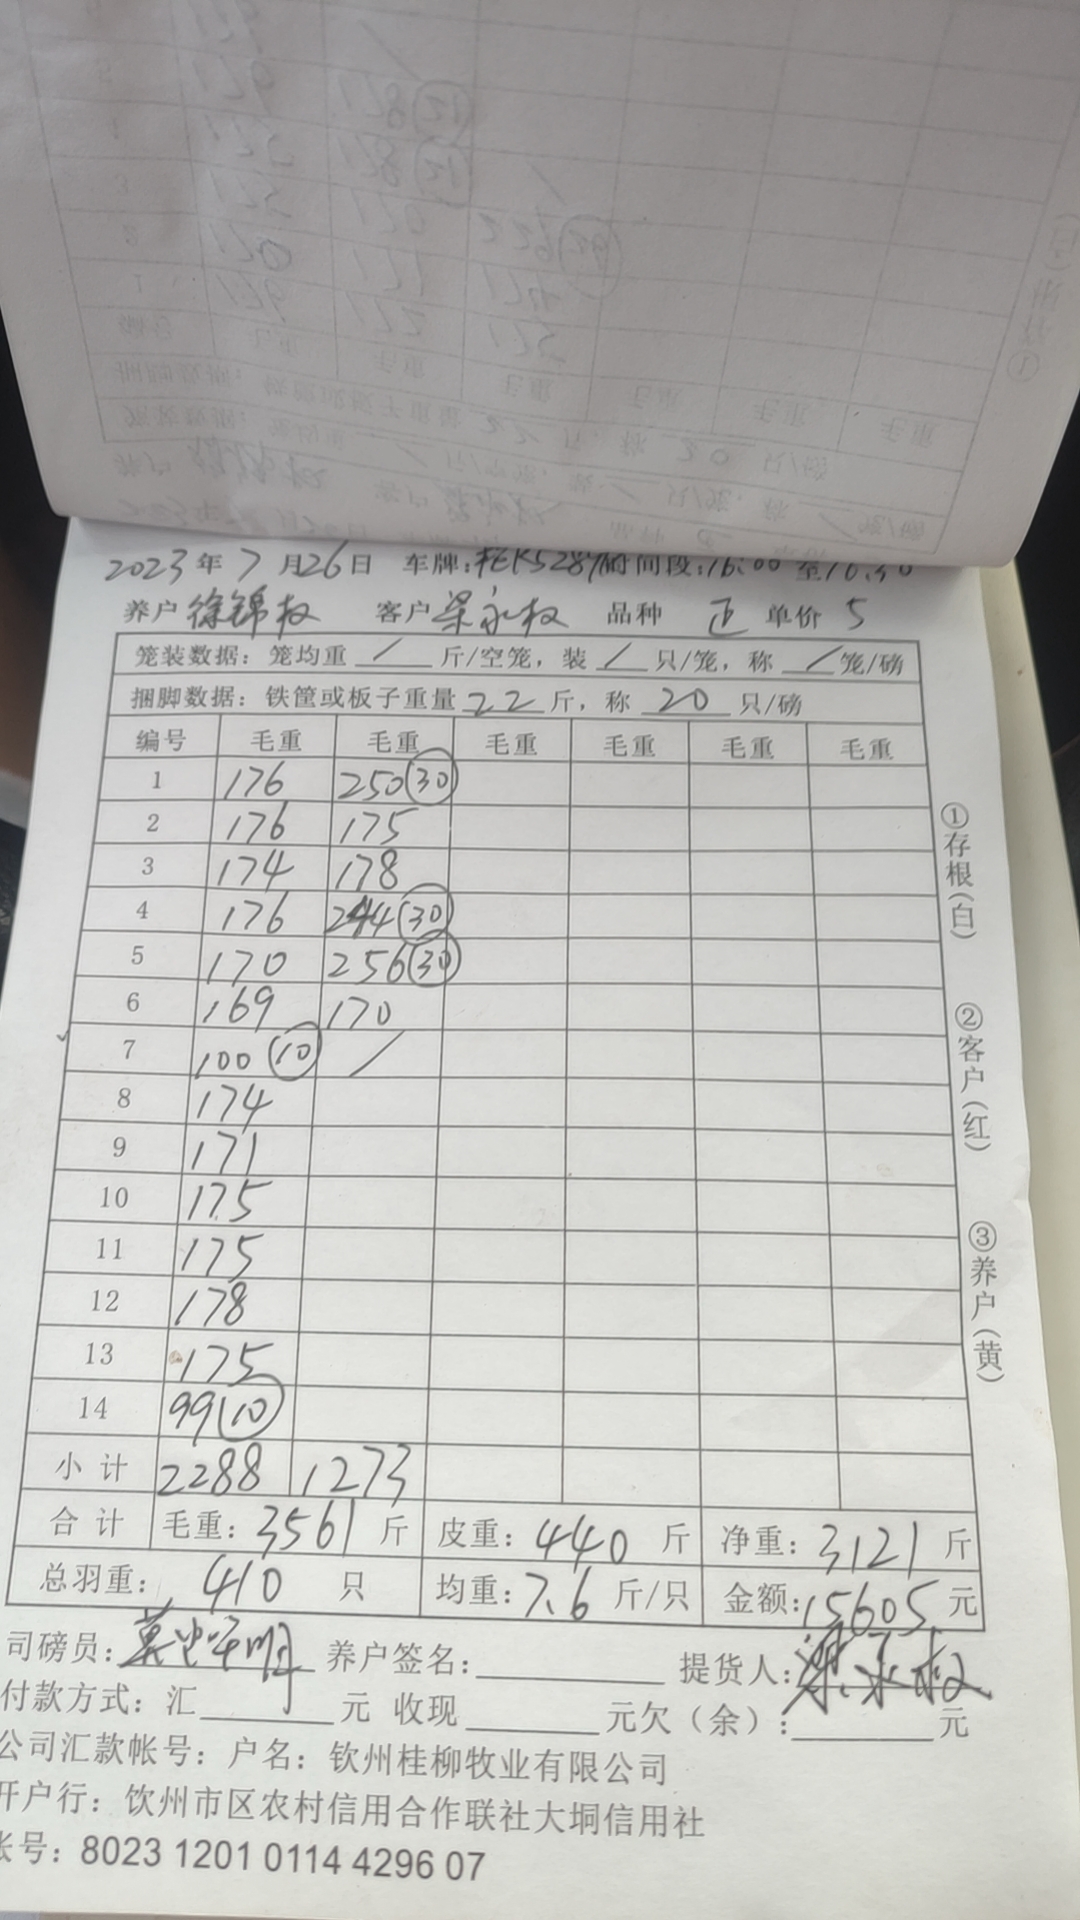 2023年7月26日 车牌: 时间段:16:00至16:30
养户徐锦权 客户梁永权 品种 正 单价 5
笼装数据：笼均重 / 斤/空笼，装 / 只/笼，称 / 笼/磅
捆脚数据：铁筐或板子重量 22 斤，称 20 只/磅
编号 毛重 毛重 毛重 毛重 毛重 毛重
1 176 250(30)
2 176 175
3 174 178
4 176 244(30)
5 170 256(30)
6 169 170
7 100(10) /
8 174
9 171
10 175
11 175
12 178
13 175
14 99(10)
小计 2288 1273
合计 毛重：3561 斤 皮重：440 斤 净重：3121 斤
总羽重：410 只 均重：7.6 斤/只 金额：15605 元
司磅员： 养户签名： 提货人：梁永权
付款方式：汇 元 收现 元欠（余）： 元
公司汇款帐号：户名：钦州桂柳牧业有限公司
开户行：饮州市区农村信用合作联社大垌信用社
帐号：8023 1201 0114 4296 07
①存根（白）
②客户（红）
③养户（黄）